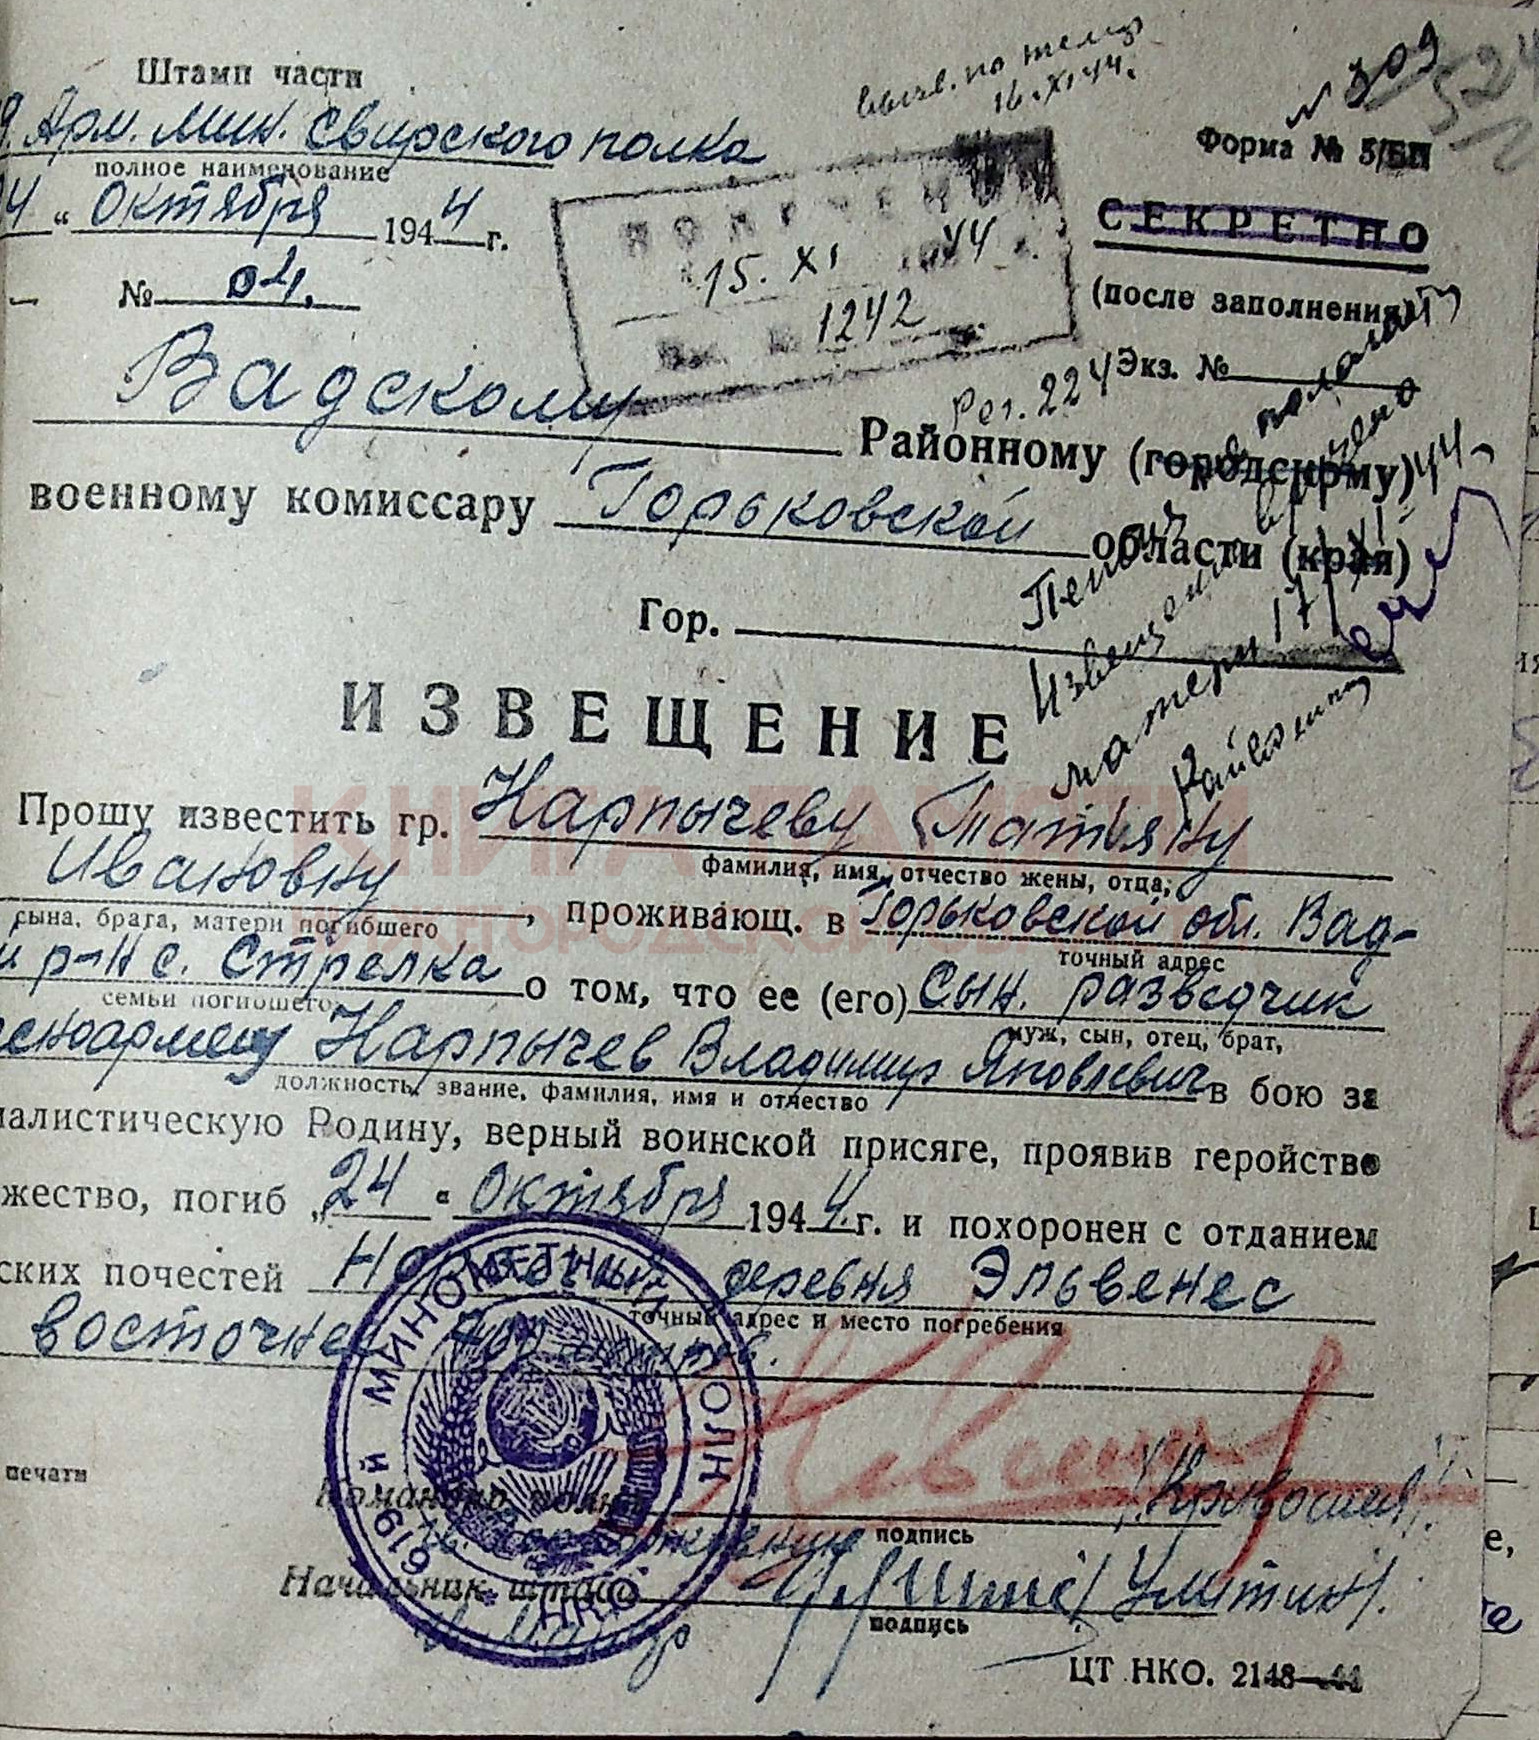 Штамп части
выяв. по
16.XI.44.
№ 309
524
9. Арм. Мин. Свирского полка
полное наименование
Форма № 5/БП
4 " Октября 1944 г.
ПОЛУЧЕНО
15. XI 44
СЕКРЕТНО
№ 04.
1242
Вх. №
(после заполнения)
Экз. №
Рег. 224
Вадскому Районному (городскому)
военному комиссару Горьковской области (края)
Гор.
Извещение вручено
матери 17/XI 44
ИЗВЕЩЕНИЕ
КНИГА ПАМЯТИ
Прошу известить гр. Нарпычеву Татьяну
фамилия, имя, отчество жены, отца,
Ивановну, проживающ. в Горьковской обл. Вад-
сына, брата, матери погибшего
точный адрес
и р-н с. Стрелка о том, что ее (его) сын. разведчик
семьи погибшего
муж, сын, отец, брат,
сноармеец Нарпычев Владимир Яковлевич в бою за
должность, звание, фамилия, имя и отчество
иалистическую Родину, верный воинской присяге, проявив геройство
жество, погиб „24 " Октября 1944. г. и похоронен с отданием
ских почестей деревня Эльвенес
точный адрес и место погребения
восточнее
МИНОМЕТНЫЙ ПОЛК
619 й
НКО
печати
Командир полка /Кривошея/.
подпись
Начальник штаба /Улитин/.
подпись
ЦТ НКО. 2148—44